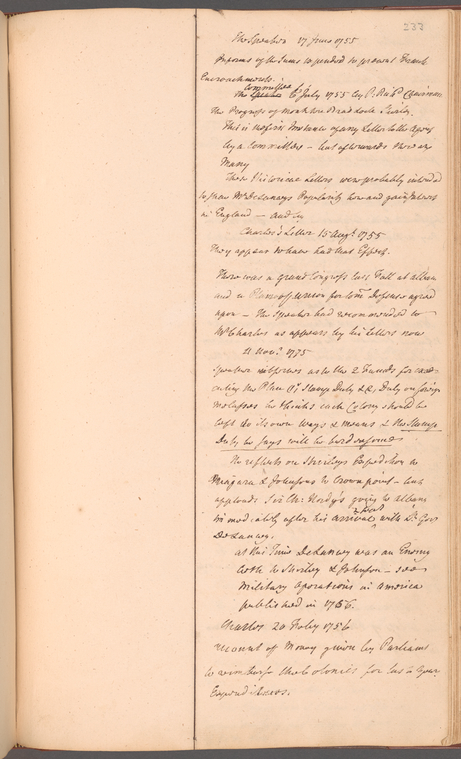 233
The Speaker 17 June 1755
Informs of the Sums expended to prevent French
Encroachments.
Committee
The Speaker 6 July 1755 by P: Chairman
The Progress of Monckton Braddock Shirley
This is the first Instance of any Letter
by a Committee – but afterwards there are
Many
These Historical Letters were probably intended
to shew Mr DeLanceys Popularity here and gain Interest
in England – and by
Charles's Letter 15 Augt. 1755
They appear to have had that Effect.
There was a grand Congress last Fall at Albany
and a Plan of Union for com Defense agreed
upon – the Speaker had recommended to
Mr Charles as appears by his Letters now
4 Novr. 1775
Speaker informs as to the 2 Funds for exe-
cuting the Plan Vizt Stamp Duty & Duty on foreign
molasses he thinks each Colony should be
left to its own ways & means & the Stamp
Duty he says will be burdensome
He reflects on Shirleys Expedition to
Niagara & Johnsons to Crown point – but
applauds Sir Ch: Hardys going to Albany
immediately after his arrival with Lt. Govr
DeLancey.
at this Time DeLancey was an Enemy
both to Shirley & Johnson – see
Military Operations in America
published in 1756.
Charles 20 Feby 1756
account of Money given by Parliamt
to reimburse the Colonies for last Year
Expenditures.